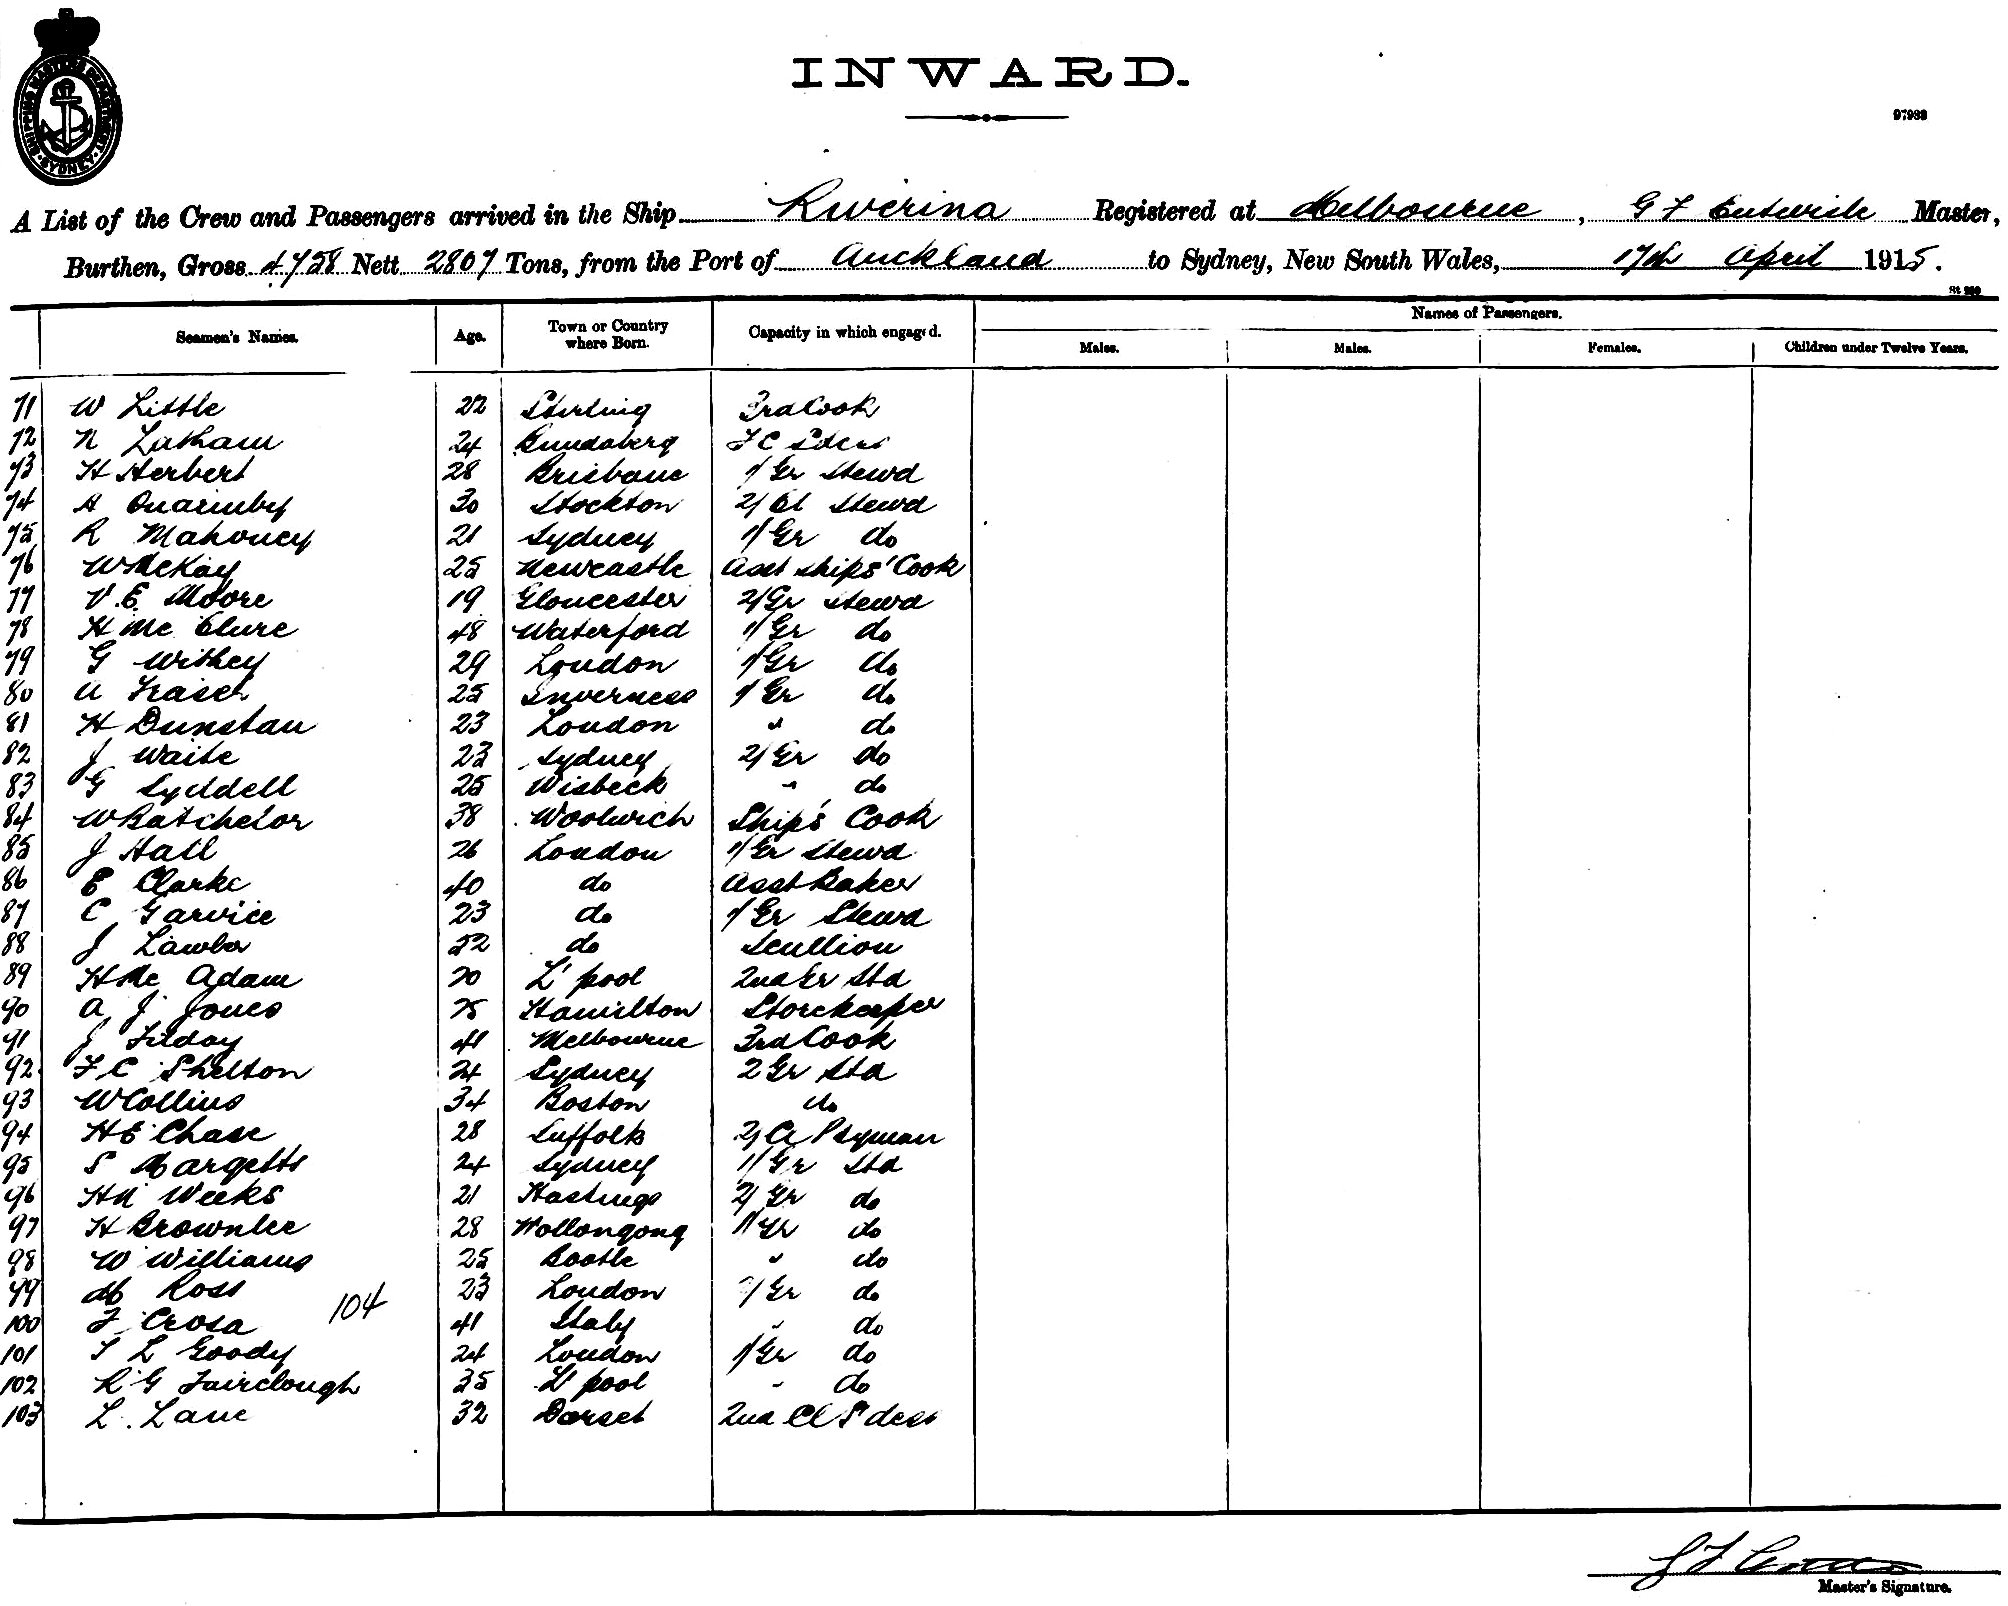 SHIPPING MASTERS DEPARTMENT SYDNEY
INWARD.
97983
A List of the Crew and Passengers arrived in the Ship Riverina Registered at Melbourne, G F Entwisle Master,
Burthen, Gross 4758 Nett 2807 Tons, from the Port of Auckland to Sydney, New South Wales, 17th April 1915.
Names of Passengers.
Seamen's Names. Age. Town or Country where Born. Capacity in which engaged. Males. Males. Females. Children under Twelve Years.
71 W Little 22 Stirling 3rd Cook
72 N Latham 24 Bundaberg
73 H Herbert 28 Brisbane 1/Gr Stewd
74 A Quarmby 30 Stockton 2/Cl Stewd
75 R Mahoney 21 Sydney 1/Gr do
76 W McKay 25 Newcastle Asst Ships' Cook
77 V. E. Moore 19 Gloucester 2/Gr Stewd
78 H Mc Clure 48 Waterford 1/Gr do
79 G Withey 29 London 1/Gr do
80 A Fraser 25 Inverness 1/Gr do
81 H Dunstan 23 London " do
82 J Waite 23 Sydney 2/Gr do
83 G Lyddell 25 Wisbeck " do
84 W Batchelor 38 Woolwich Ships' Cook
85 J Hall 26 London 1/Gr Stewd
86 E Clarke 40 do Asst Baker
87 C Garvice 23 do 1/Gr Stewd
88 J Lawler 22 do Scullion
89 H Mc Adam 20 L'pool 2nd Gr Std
90 A J Jones 25 Hamilton Storekeeper
91 J Filday 41 Melbourne 3rd Cook
92 F C Shelton 24 Sydney 2 Gr Std
93 W Collins 34 Boston do
94 H E Chase 28 Suffolk 2/Cl Ptyman
95 S Margetts 24 Sydney 1/Gr Std
96 H N Weeks 21 Hastings 2/Gr do
97 H Brownlee 28 Wollongong 1/Gr do
98 W Williams 25 Bootle " do
99 M Ross 23 London 2/Gr do
104
100 F Crosa 41 Italy " do
101 T L Goody 24 London 1/Gr do
102 R G Fairclough 35 L'pool " do
103 L. Lane 32 Dorset 2nd Cl S'dess
Master's Signature.